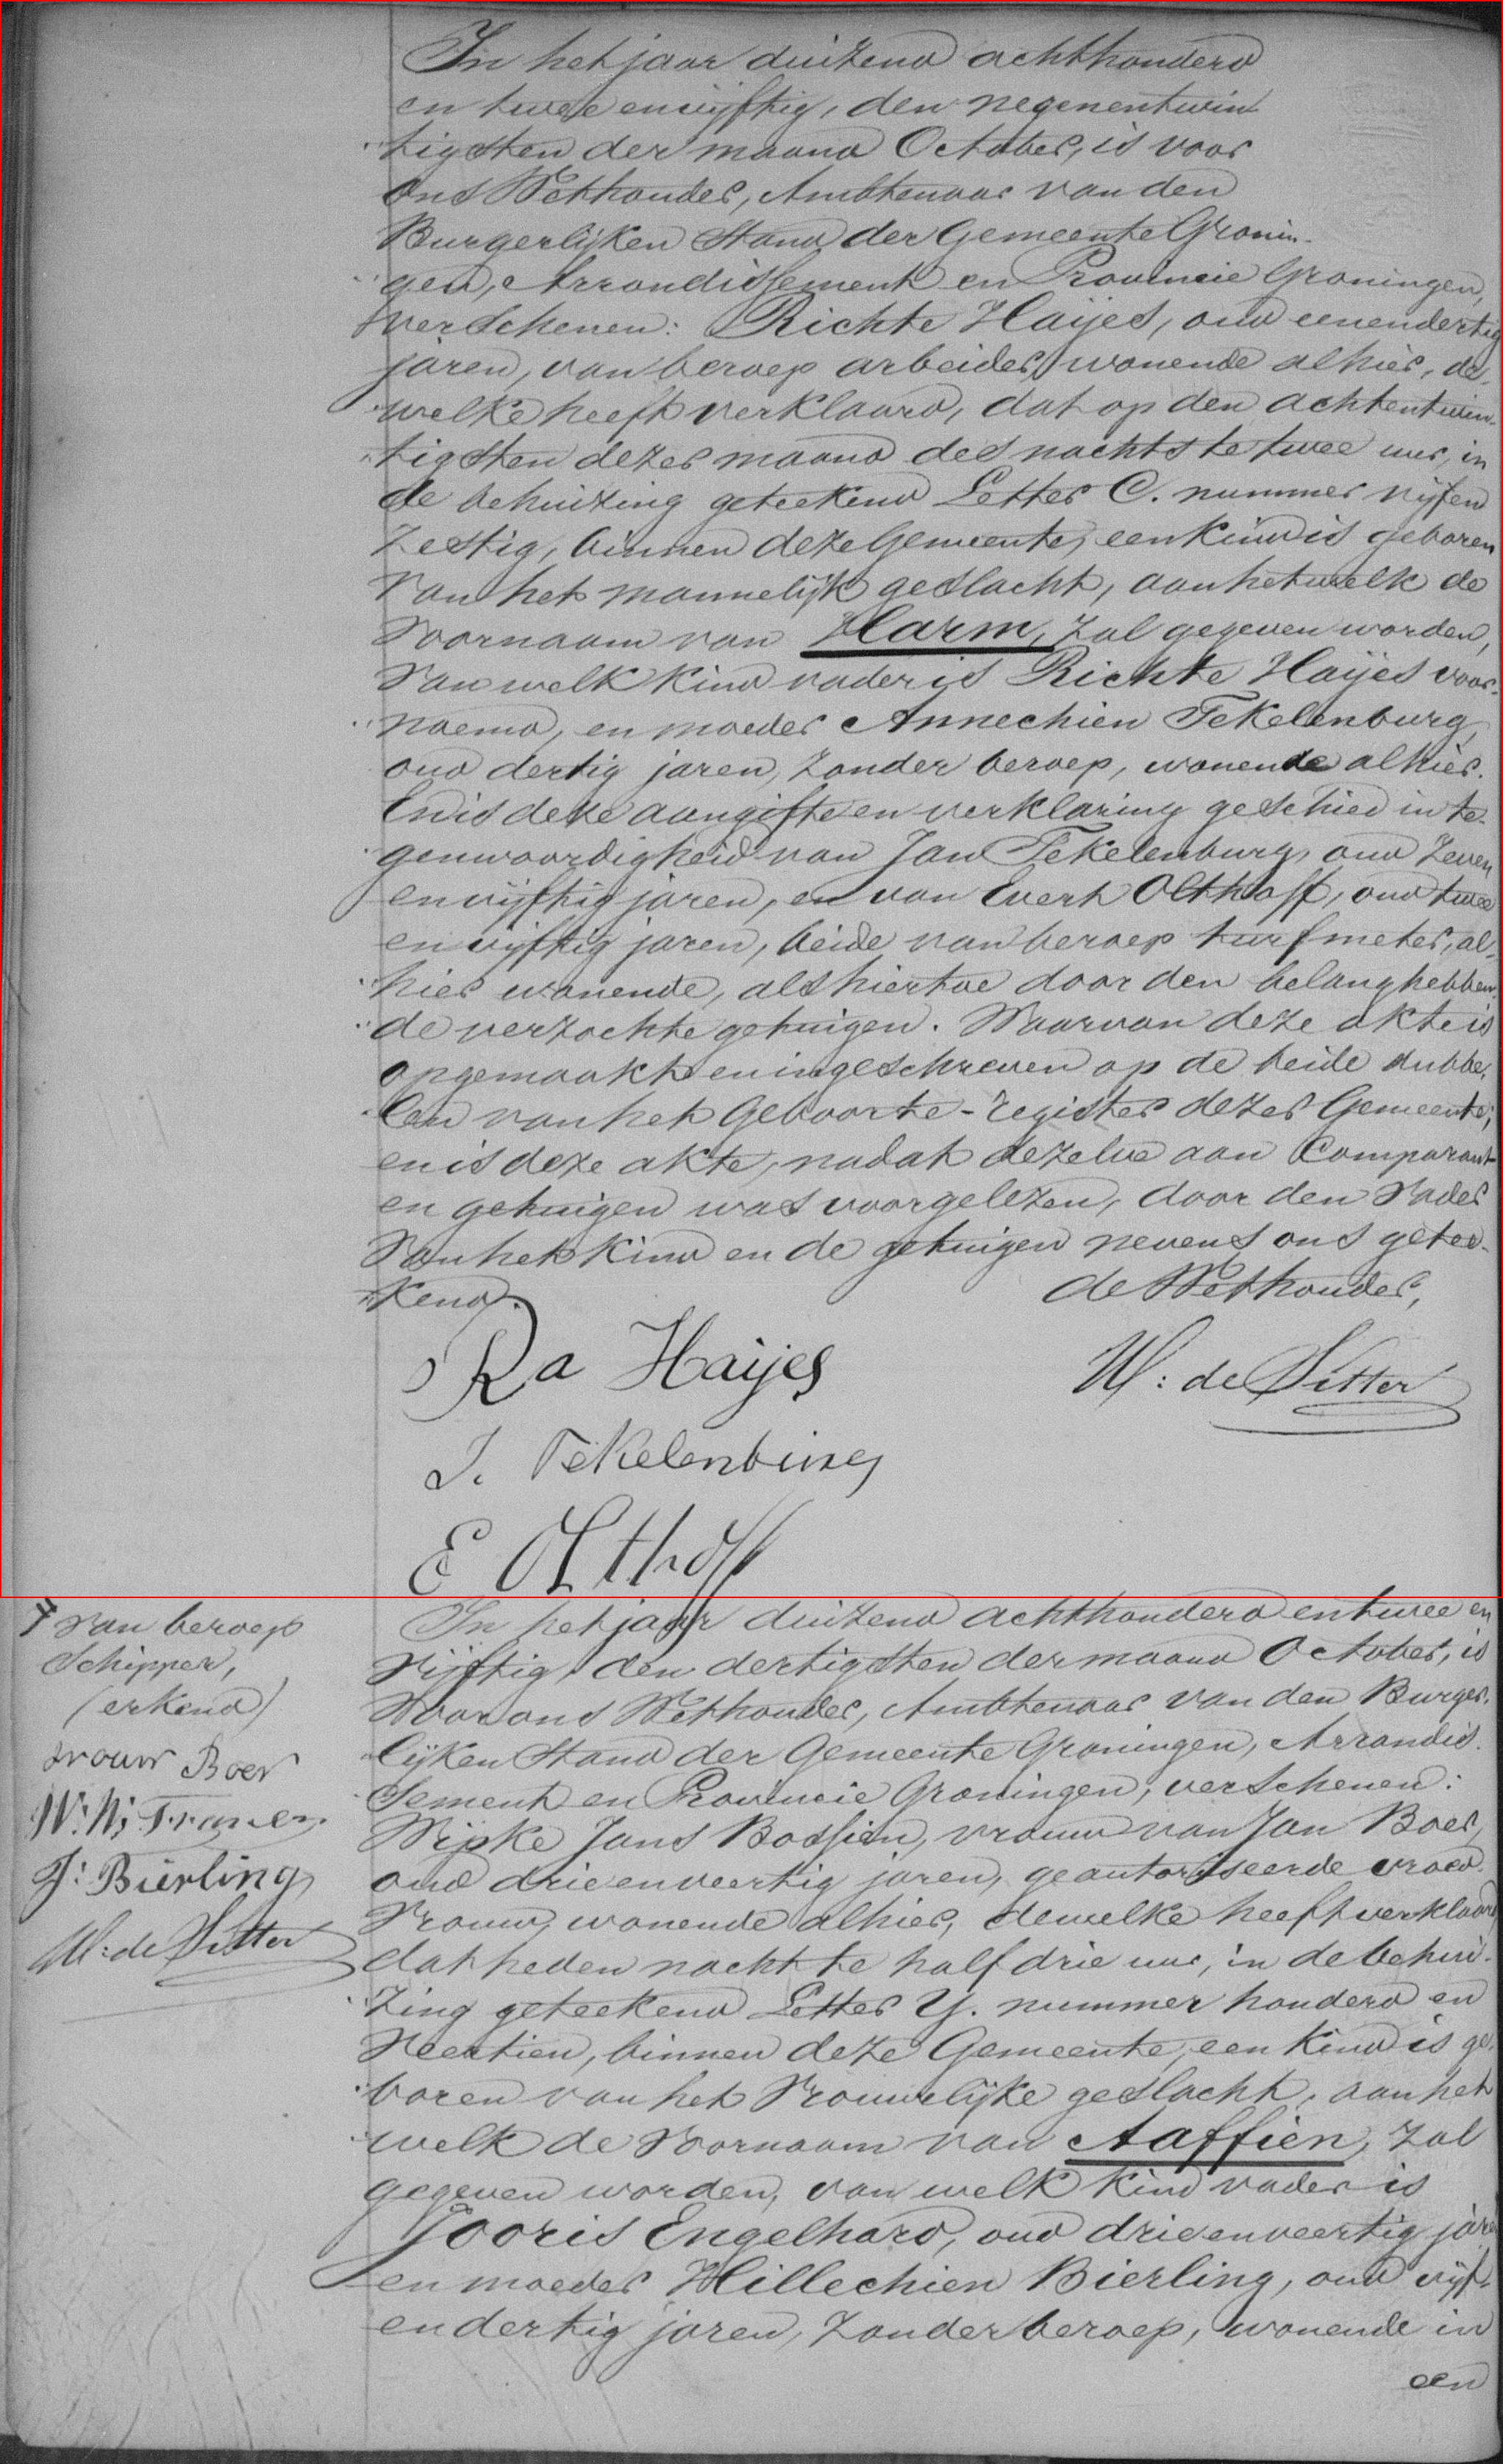 In het jaar duizend achthonderd
en twee en vijftig, den negenentwin
tigsten der maand October, is voor
ons Wethouder, Ambtenaar van den
Burgerlijken Stand der Gemeente Gronin-
gen, Arrondissement en Provincie Groningen,
verschenen: Richte Haijes, oud eenendertig
jaren, van beroep arbeider, wonende alhier, de-
welke heeft verklaard, dat op den achtentwin-
tigsten dezer maand des nachts te twee uur, in
de behuizing geteekend Letter C. nummer vijfen
zestig, binnen deze Gemeente, een kind is geboren
van het mannelijk geslacht, aan hetwelk de
Voornaam van Harm, zal gegeven worden,
van welk kind vader is Richte Haijes voor-
noemd, en moeder Annechien Tekelenburg,
oud dertig jaren, zonder beroep, wonende alhier.
En is deze aangifte en verklaring geschied in te-
genwoordigheid van Jan Tekelenburg, oud zeven
en vijftig jaren, en van Evert Olthoff, oud twee
en vijftig jaren, beide van beroep turfmeter, al-
hier wonende, als hiertoe door den belanghebben-
de verzochte getuigen. Waarvan deze akte is
opgemaakt en ingeschreven op de beide dubbe-
len van het Geboorte-register dezer Gemeente;
en is deze akte, nadat dezelve aan Comparant
en getuigen was voorgelezen, door den Vader
van het kind en de getuigen nevens ons getee-
kend.
de Wethouder,
Ra Haijes
W: de Sitter
J. Tekelenburg
E Olthoff
In het jaar duizend achthonderd en twee en
vijftig, den dertigsten der maand October, is
voor ons Wethouder, Ambtenaar van den Burger-
lijken Stand der Gemeente Groningen, Arrondis-
sement en Provincie Groningen, verschenen:
Wipke Jans Bossien, vrouw van Jan Boer,
oud drieenveertig jaren, geautoriseerde vroed-
vrouw, wonende alhier, dewelke heeft verklaard
dat heden nacht te half drie uur, in de behui-
zing geteekend Letter Y. nummer honderd en
veertien, binnen deze Gemeente, een kind is ge-
boren van het Vrouwelijke geslacht, aan het
welk de Voornaam van Aaffien, zal
gegeven worden, van welk kind vader is
Jooris Engelhard, oud drieenveertig jaren
en moeder Hillechien Bierling, oud vijf-
en dertig jaren, zonder beroep, wonende in
een
van beroep
Schipper,
(erkend)
vrouw Boer
J: Bierling
W: de Sitter